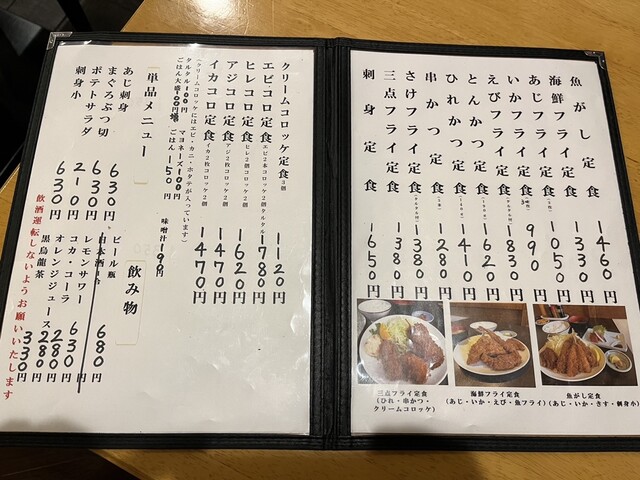 魚がし定食 1460円
海鮮フライ定食 1330円
あじフライ定食 990円
いかフライ定食
えびフライ定食 1830円
とんかつ定食 1620円
ひれかつ定食 1410円
串かつ定食 1280円
さけフライ定食 1380円
三点フライ定食 1380円
刺身定食 1650円
魚がし定食
(あじ・いか・きす・刺身小)
海鮮フライ定食
(あじ・いか・えび・魚フライ)
三点フライ定食
(ひれ・串かつ・
クリームコロッケ)
クリームコロッケ定食 3個 1120円
エビコロ定食 エビ2本コロッケ2個タルタル 1780円
ヒレコロ定食 ヒレ2個コロッケ2個 1620円
アジコロ定食 アジ2枚コロッケ2個 1470円
イカコロ定食 イカ2枚コロッケ2個 1470円
(クリームコロッケにはエビ・カニ・ホタテが入っています)
タルタル100円 マヨネーズ100円
ごはん大盛100円増 ごはん150円 味噌汁190円
単品メニュー
あじ刺身 630円
まぐろぶつ切 630円
ポテトサラダ 210円
刺身小 630円
飲み物
ビール瓶 680円
日本酒
レモンサワー
コカ・コーラ 630円
オレンジジュース 280円
黒烏龍茶 280円
330円
飲酒運転しないようお願いいたします